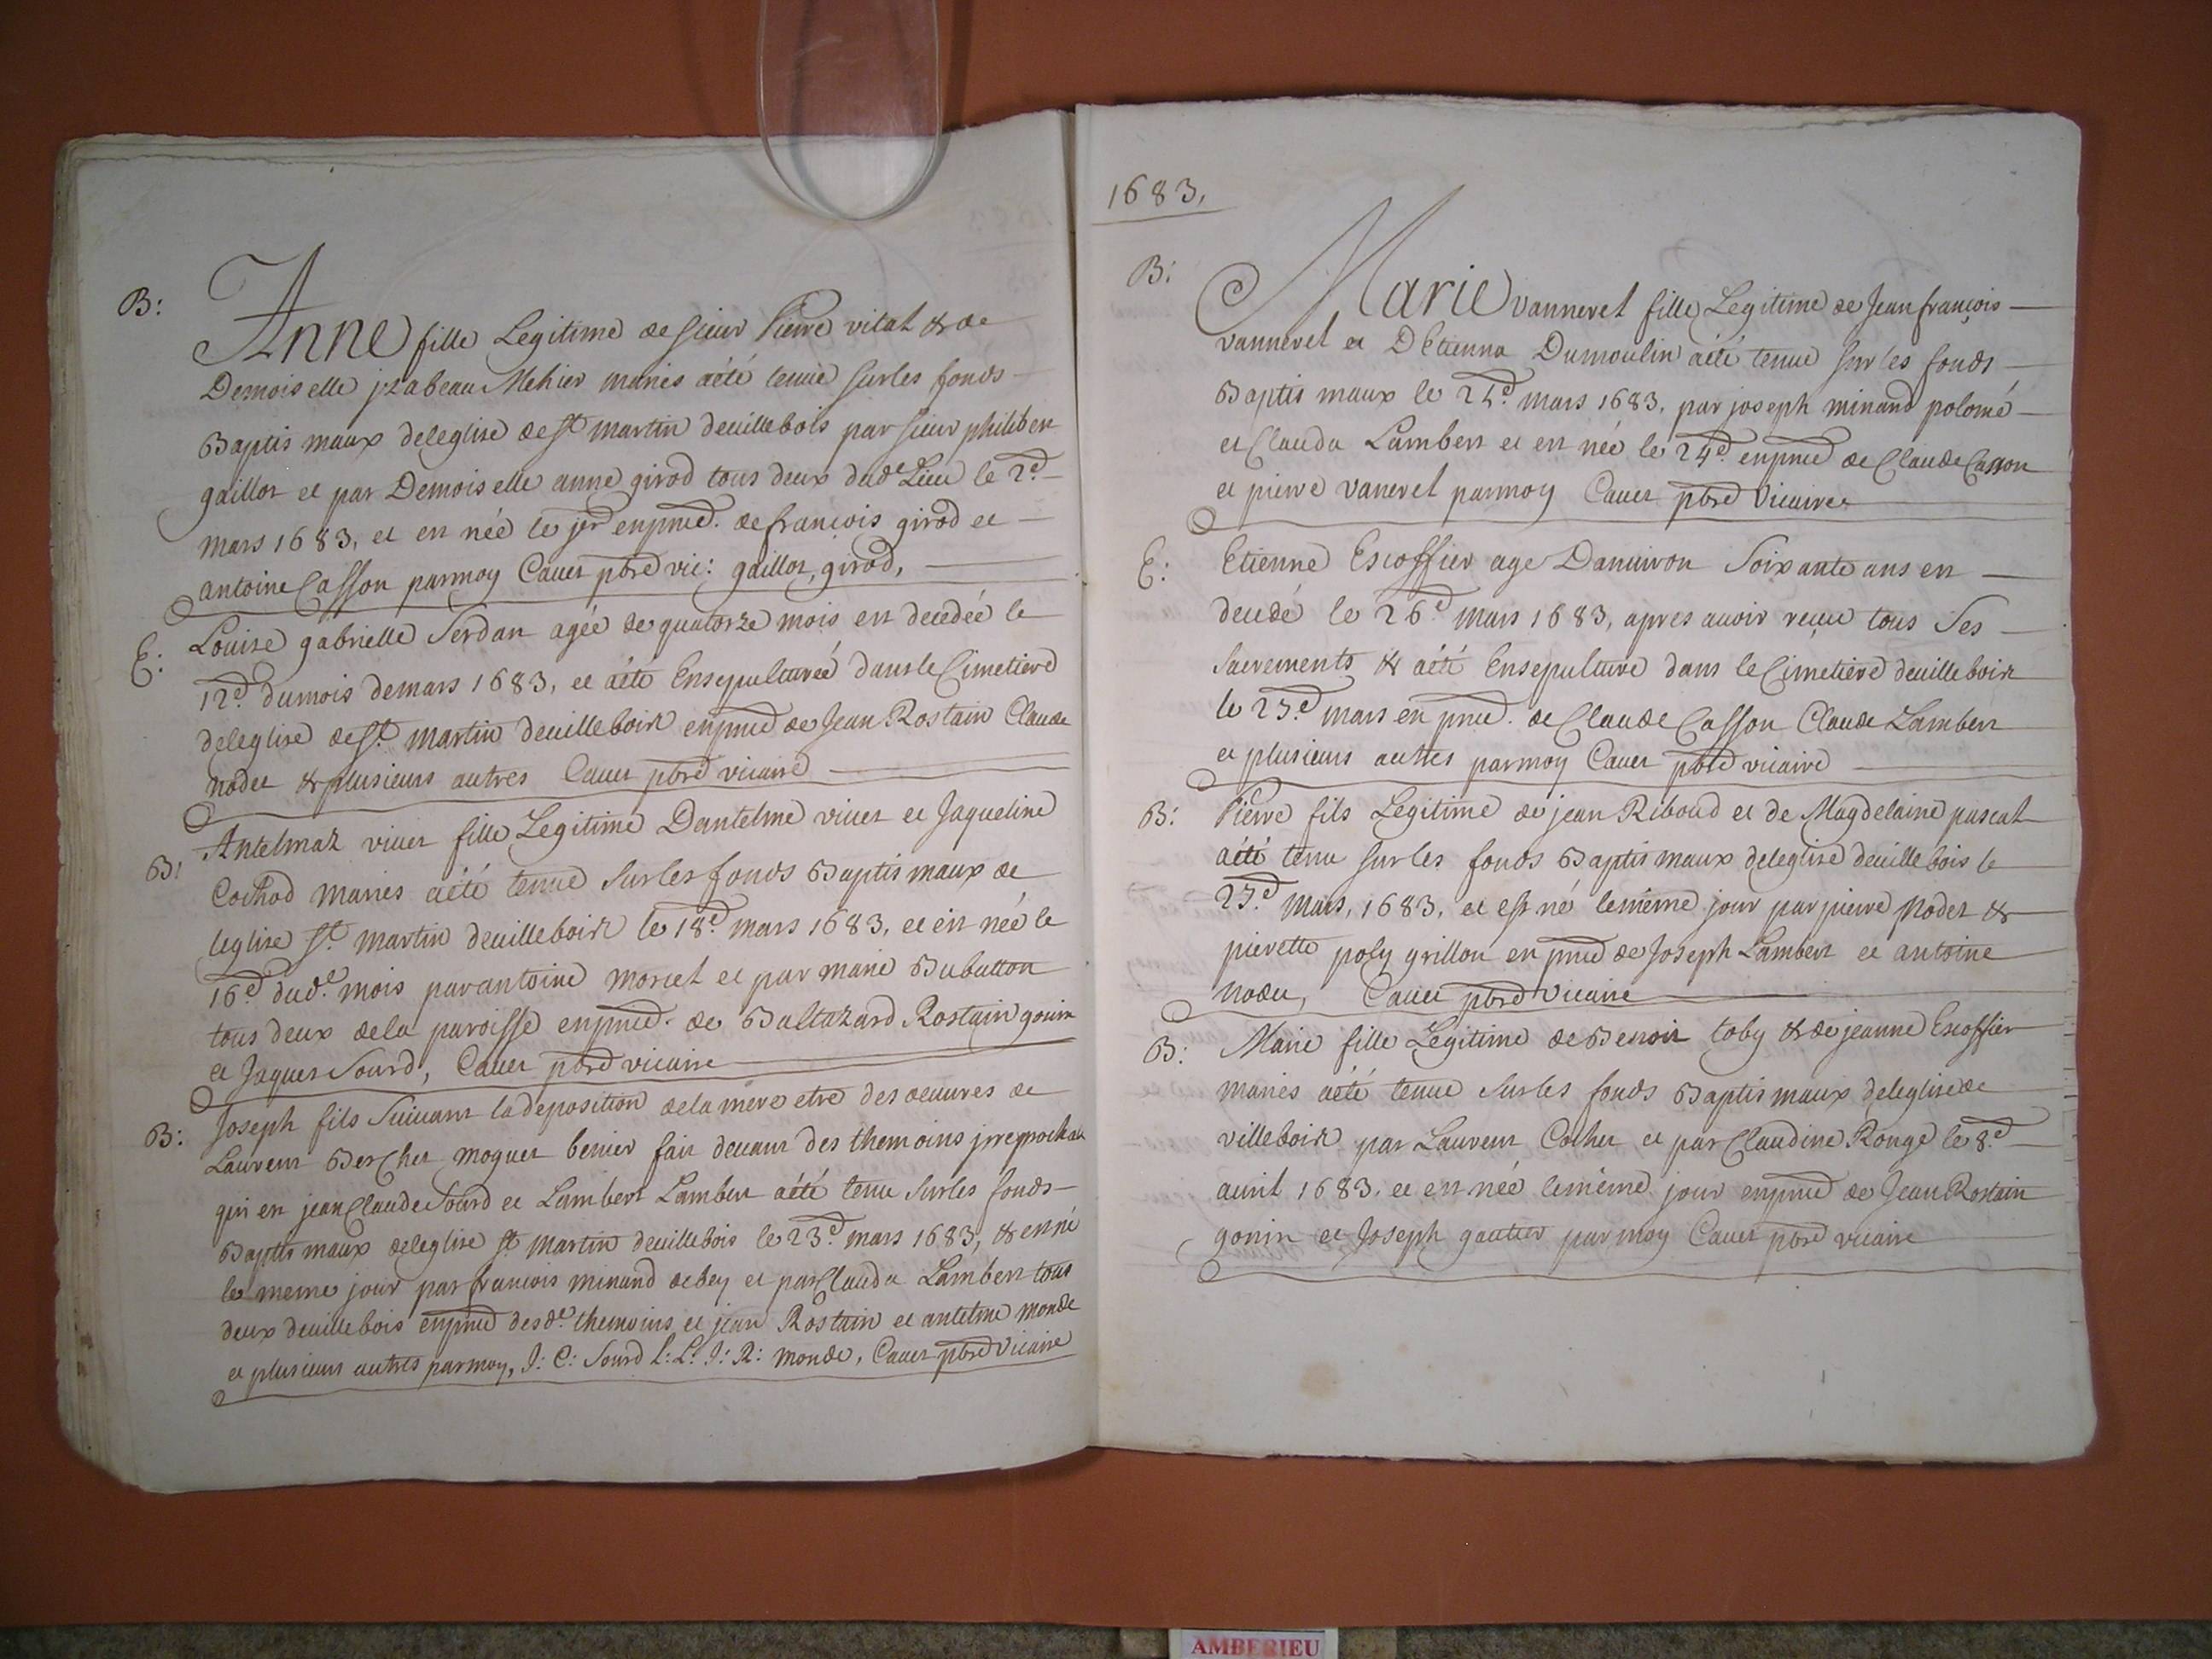 B:
Anne fille Legitime de sieur Pierre vital & de
Demoiselle jzabeau Mehier mariés aété tenue sur les fonds
Baptismaux deleglise de St martin deuillebois par sieur philiber
gaillot et par Demoiselle anne girod tous deux dud. Lieu le 2d
mars 1683, et en née le jer enpnce. de françois girod et
antoine Casson parmoy Cauet pbre vic: gaillot, girod,
E:
Louise gabrielle Serdan agée de quatorze mois en decedée le
12d. dumois demars 1683, et aété Ensepulturée dans le Cimetiere
deleglise de St. martin deuilleboix enpnce de Jean Rostain Claude
nodet & plusieurs autres Cauet pbre vicaire
B:
Antelmaz viuet fille Legitime Dantelme viuet et Jaqueline
Cochod mariés aété tenue sur les fonds Baptismaux de
leglise St. martin deuilleboix le 18d. mars 1683, et en née le
16d dud. mois par antoine moriet et par marie Dubutton
tous deux de la paroisse enpnce. de Baltazard Rostain gonin
et Jaques Sourd, Cauet pbre vicaire
B:
Joseph fils Suiuant la deposition de la mere etre des oeuures de
Laurent Bercher moguet benier fait deuant des themoins jrreprochab
qui en jean Claude Sourd et Lambert Lambert aété tenu sur les fonds
Baptismaux deleglise St martin deuillebois le 23d. mars 1683, & en né
le meme jour par francois minand debey et par Clauda Lambert tous
deux deuillebois enpnce desd. themoins et jean Rostain et antelme monde
et plusieurs autres parmoy, J: C: Sourd L: L: J: R: monde, Cauet pbre Vicaire
1683,
B:
Marie vanneret fille Legitime de Jean françois
vanneret et D Etienna Dumoulin aété tenue sur les fonds
Baptismaux le 25d. mars 1683, par joseph minand polomé
et Clauda Lambert et en née le 24d. enpnce de Claude Casson
et pierre vaneret parmoy Cauet pbre Vicaire
E:
Etienne Escoffier age Danuiron Soixante ans en
decedé le 26d. mars 1683, apres auoir reçeu tous Ses
Sacrements & aété Ensepulture dans le Cimetiere deuilleboix
le 27.d mars en pnce. de Claude Casson Claude Lambert
et plusieurs autres parmoy Cauet pbre vicaire
B:
Pierre fils Legitime de jean Riboud et de Magdelaine pascal
aété tenu sur les fonds Baptismaux deleglise deuillebois le
27.d mars, 1683, et est né le même jour par pierre nodet &
pierette poly grillon en pnce de Joseph Lambert et antoine
nodet, Cauet pbre Vicaire
B:
Marie fille Legitime de Benoit toby & de jeanne Escoffier
mariés aété tenue sur les fonds Baptismaux deleglise de
villeboix par Laurent Cochet et par Claudine Rouge le 8.d
auril 1683. et en née le même jour enpnce de Jean Rostain
gonin et Joseph gautier par moy Cauet pbre vicaire
AMBERIEU